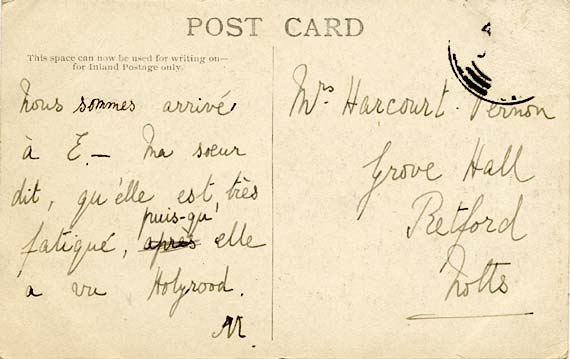 POST CARD
This space can now be used for writing on—
for Inland Postage only.
Nous sommes arrivé
à E.— Ma soeur
dit, qu'elle est, très
puis-qu'
fatiqué, après elle
a vu Holyrood.
M.
Mrs Harcourt. Vernon
Grove Hall
Retford
Notts